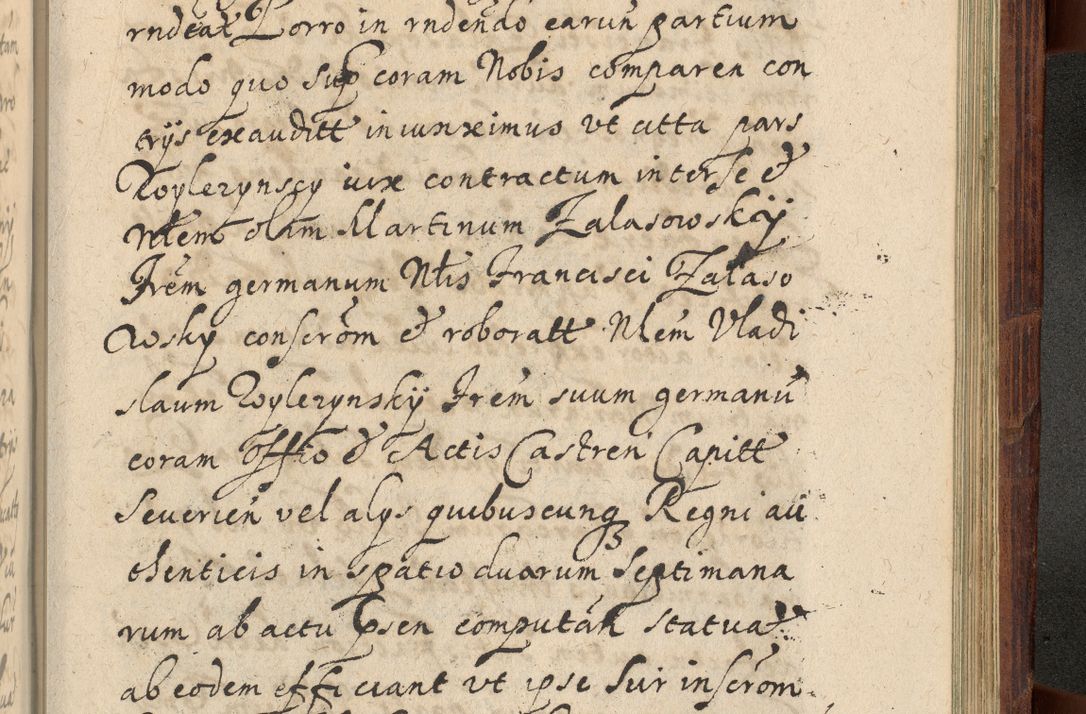 rndeat Porro in rndendo earun̄ partium
modo quo sup coram Nobis comparen con
trijs exauditt iniunximus vt citta pars
Woylezynscy iure contractum inter se et
Nlem̄ olim Martinum Zalasowskij
Frem̄ germanum Nlis Francisci Zalaso
wsky conscrōm et roboratt Nlem̄ Vladi
slaum Woylezynskij Frem̄ suum germanū
coram Offto et Actis Castren Capitt
Seuerien̄ vel alijs quibuscunq3 Regni au
thenticis in spatio duorum septimana
rum ab actu Psen computān statuat
ab eodem efficiant vt ipse sui inscrōm